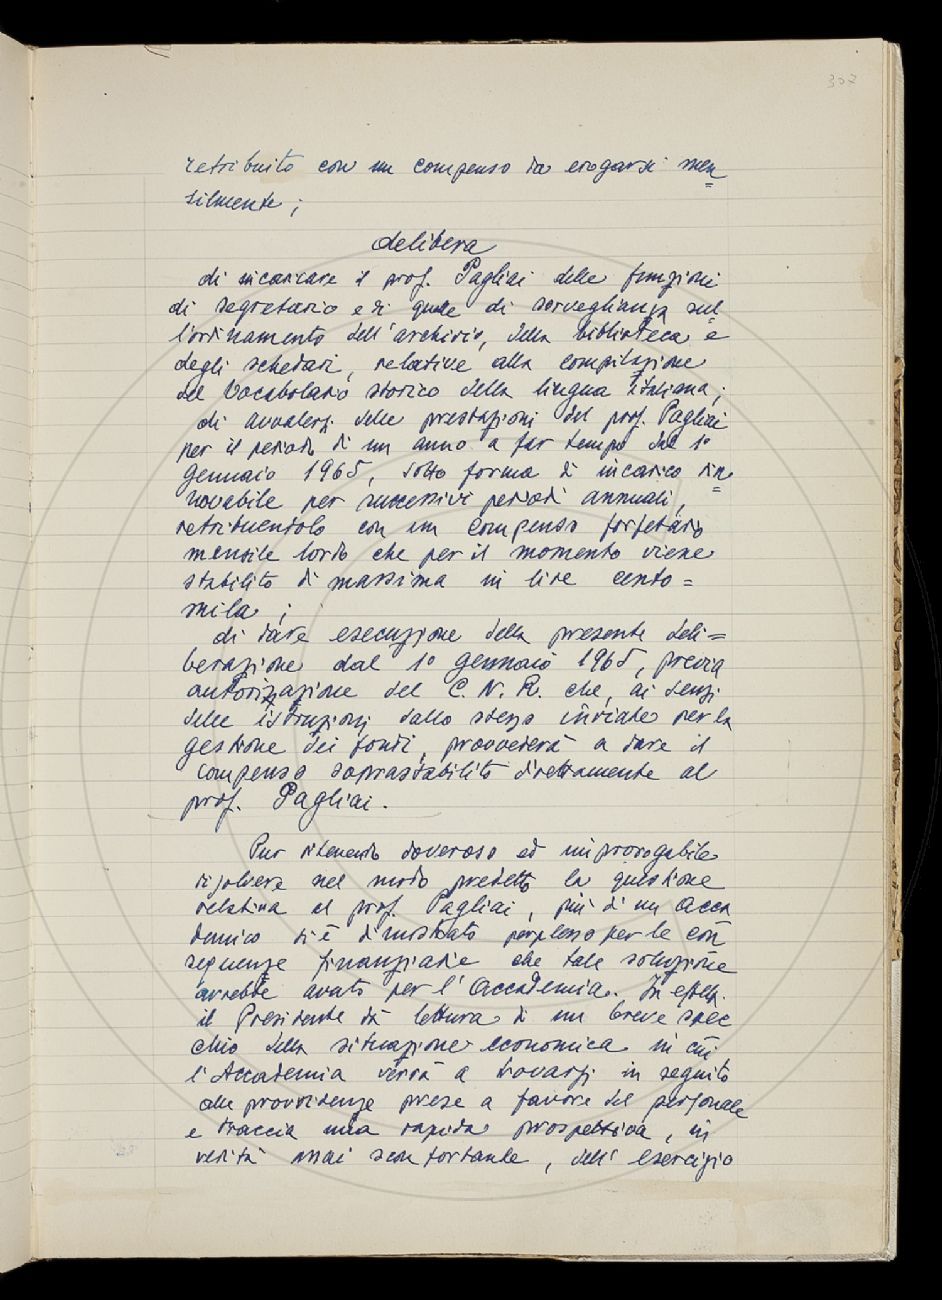 307
retribuito con un compenso da erogarsi men=
silmente;
delibera
di incaricare il prof. Pagliai delle funzioni
di segretario e di quelle di sorveglianza sul=
l'ordinamento dell'archivio, della biblioteca e
degli schedari, relative alla compilazione
del Vocabolario storico della lingua italiana;
di avvalersi delle prestazioni del prof. Pagliai
per il periodo di un anno a far tempo dal 1°
gennaio 1965, sotto forma di incarico rin=
novabile per successivi periodi annuali,
retribuendolo con un compenso forfetario
mensile lordo che per il momento viene
stabilito di massima in lire cento=
mila;
di dare esecuzione della presente deli=
berazione dal 1° gennaio 1965, previa
autorizzazione del C.N.R. che, ai sensi
delle istruzioni dallo stesso inviate per la
gestione dei fondi, provvederà a dare il
compenso soprastabilito direttamente al
prof. Pagliai.
Pur ritenendo doveroso ed improrogabile
risolvere nel modo predetto la questione
relativa al prof. Pagliai, più di un Acca
demico si è dimostrato perplesso per le con
seguenze finanziarie che tale soluzione
avrebbe avuto per l'Accademia. In
il Presidente dà lettura di un breve spec
chio della situazione economica in cui
l'Accademia verrà a trovarsi in seguito
alle provvidenze prese a favore del personale
e traccia una rapida prospettiva, in
verità assai sconfortante, dell'esercizio